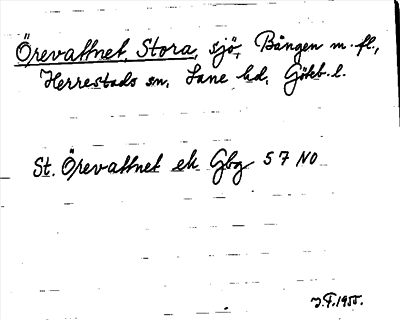 Örevattnet, Stora, sjö, Bången m. fl.,
Herrestads sn, Lane hd, Göteb. l.
St. Örevattnet ek Gbg 57 NO
J.F. 1955.